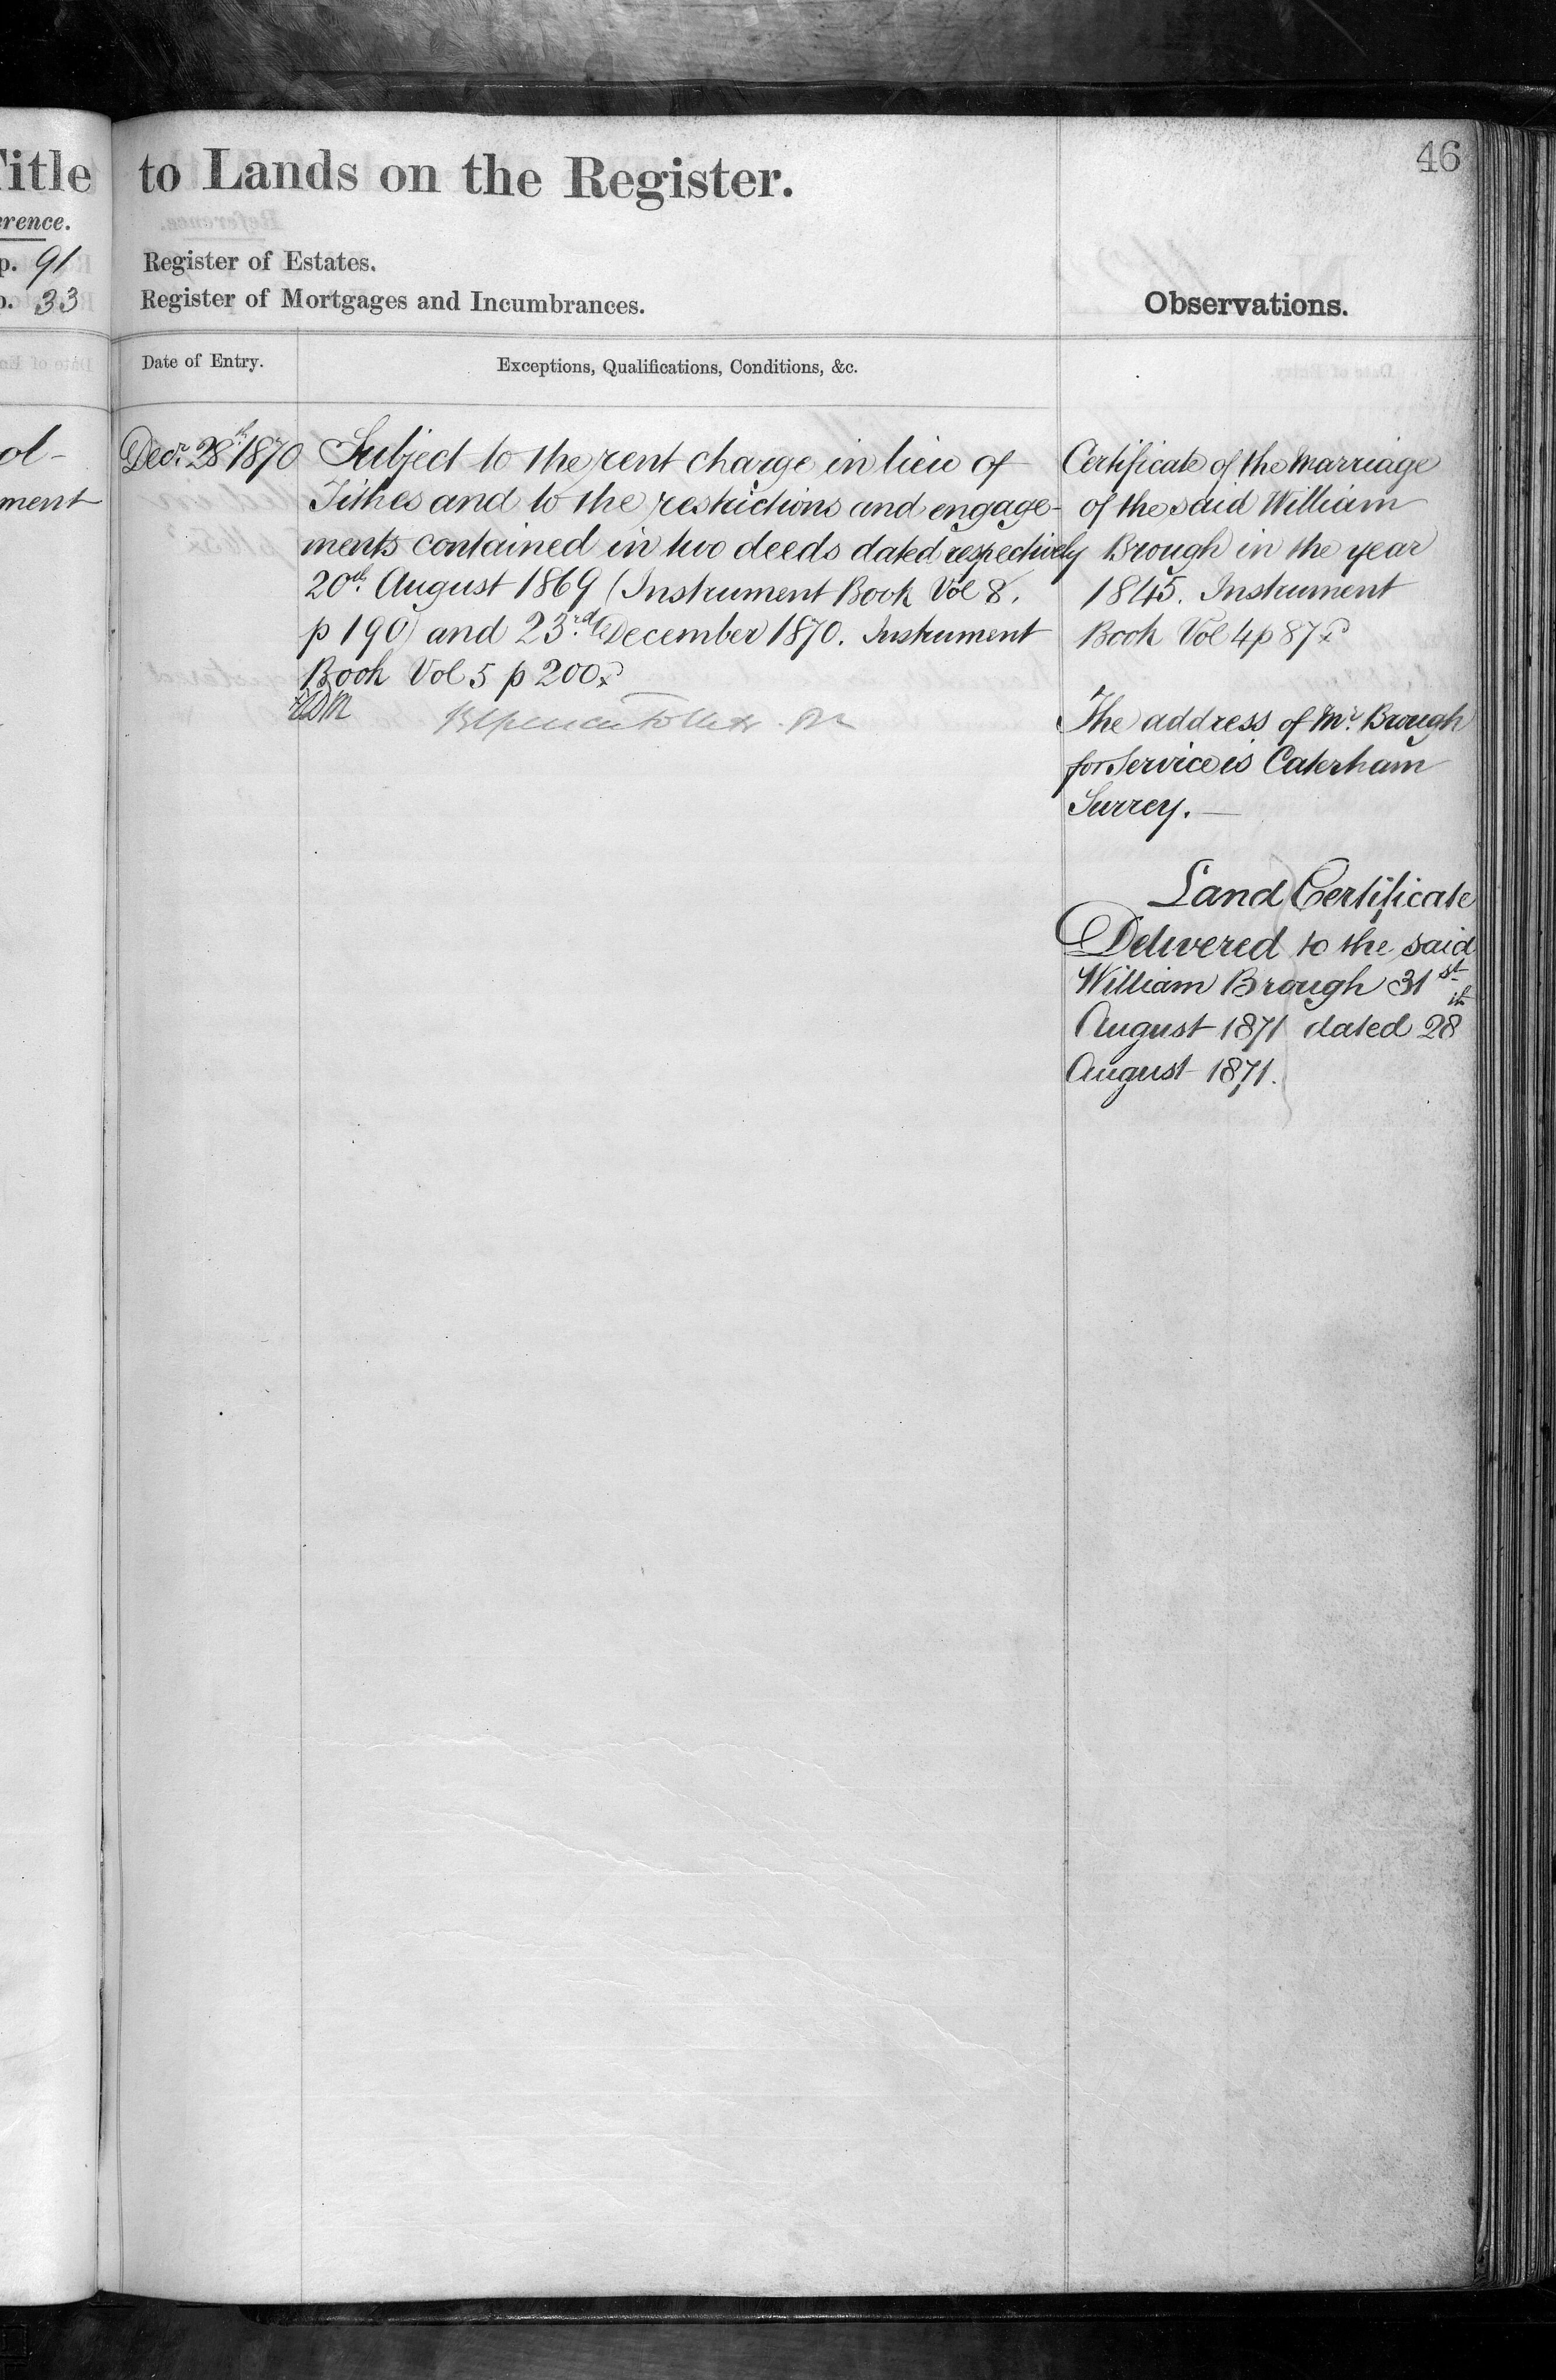 Title to Lands on the Register.
46
Reference.
p. 91
p. 33
Register of Estates.
Register of Mortgages and Incumbrances.
Observations.
Date of Entry.
Exceptions, Qualifications, Conditions, &c.
ol-
ment
Decr. 28th 1870
Subject to the rent charge in lieu of
Tithes and to the restrictions and engage-
ments contained in two deeds dated respectively
20th August 1869 (Instrument Book Vol 8.
p 190) and 23rd December 1870. Instrument
Book Vol 5 p 200
Certificate of the Marriage
of the said William
Brough in the year
1845. Instrument
Book Vol 4 p 87
The address of Mr. Brough
for Service is Caterham
Surrey.—
Land Certificate
Delivered to the said
William Brough 31st
August 1871 dated 28th
August 1871.